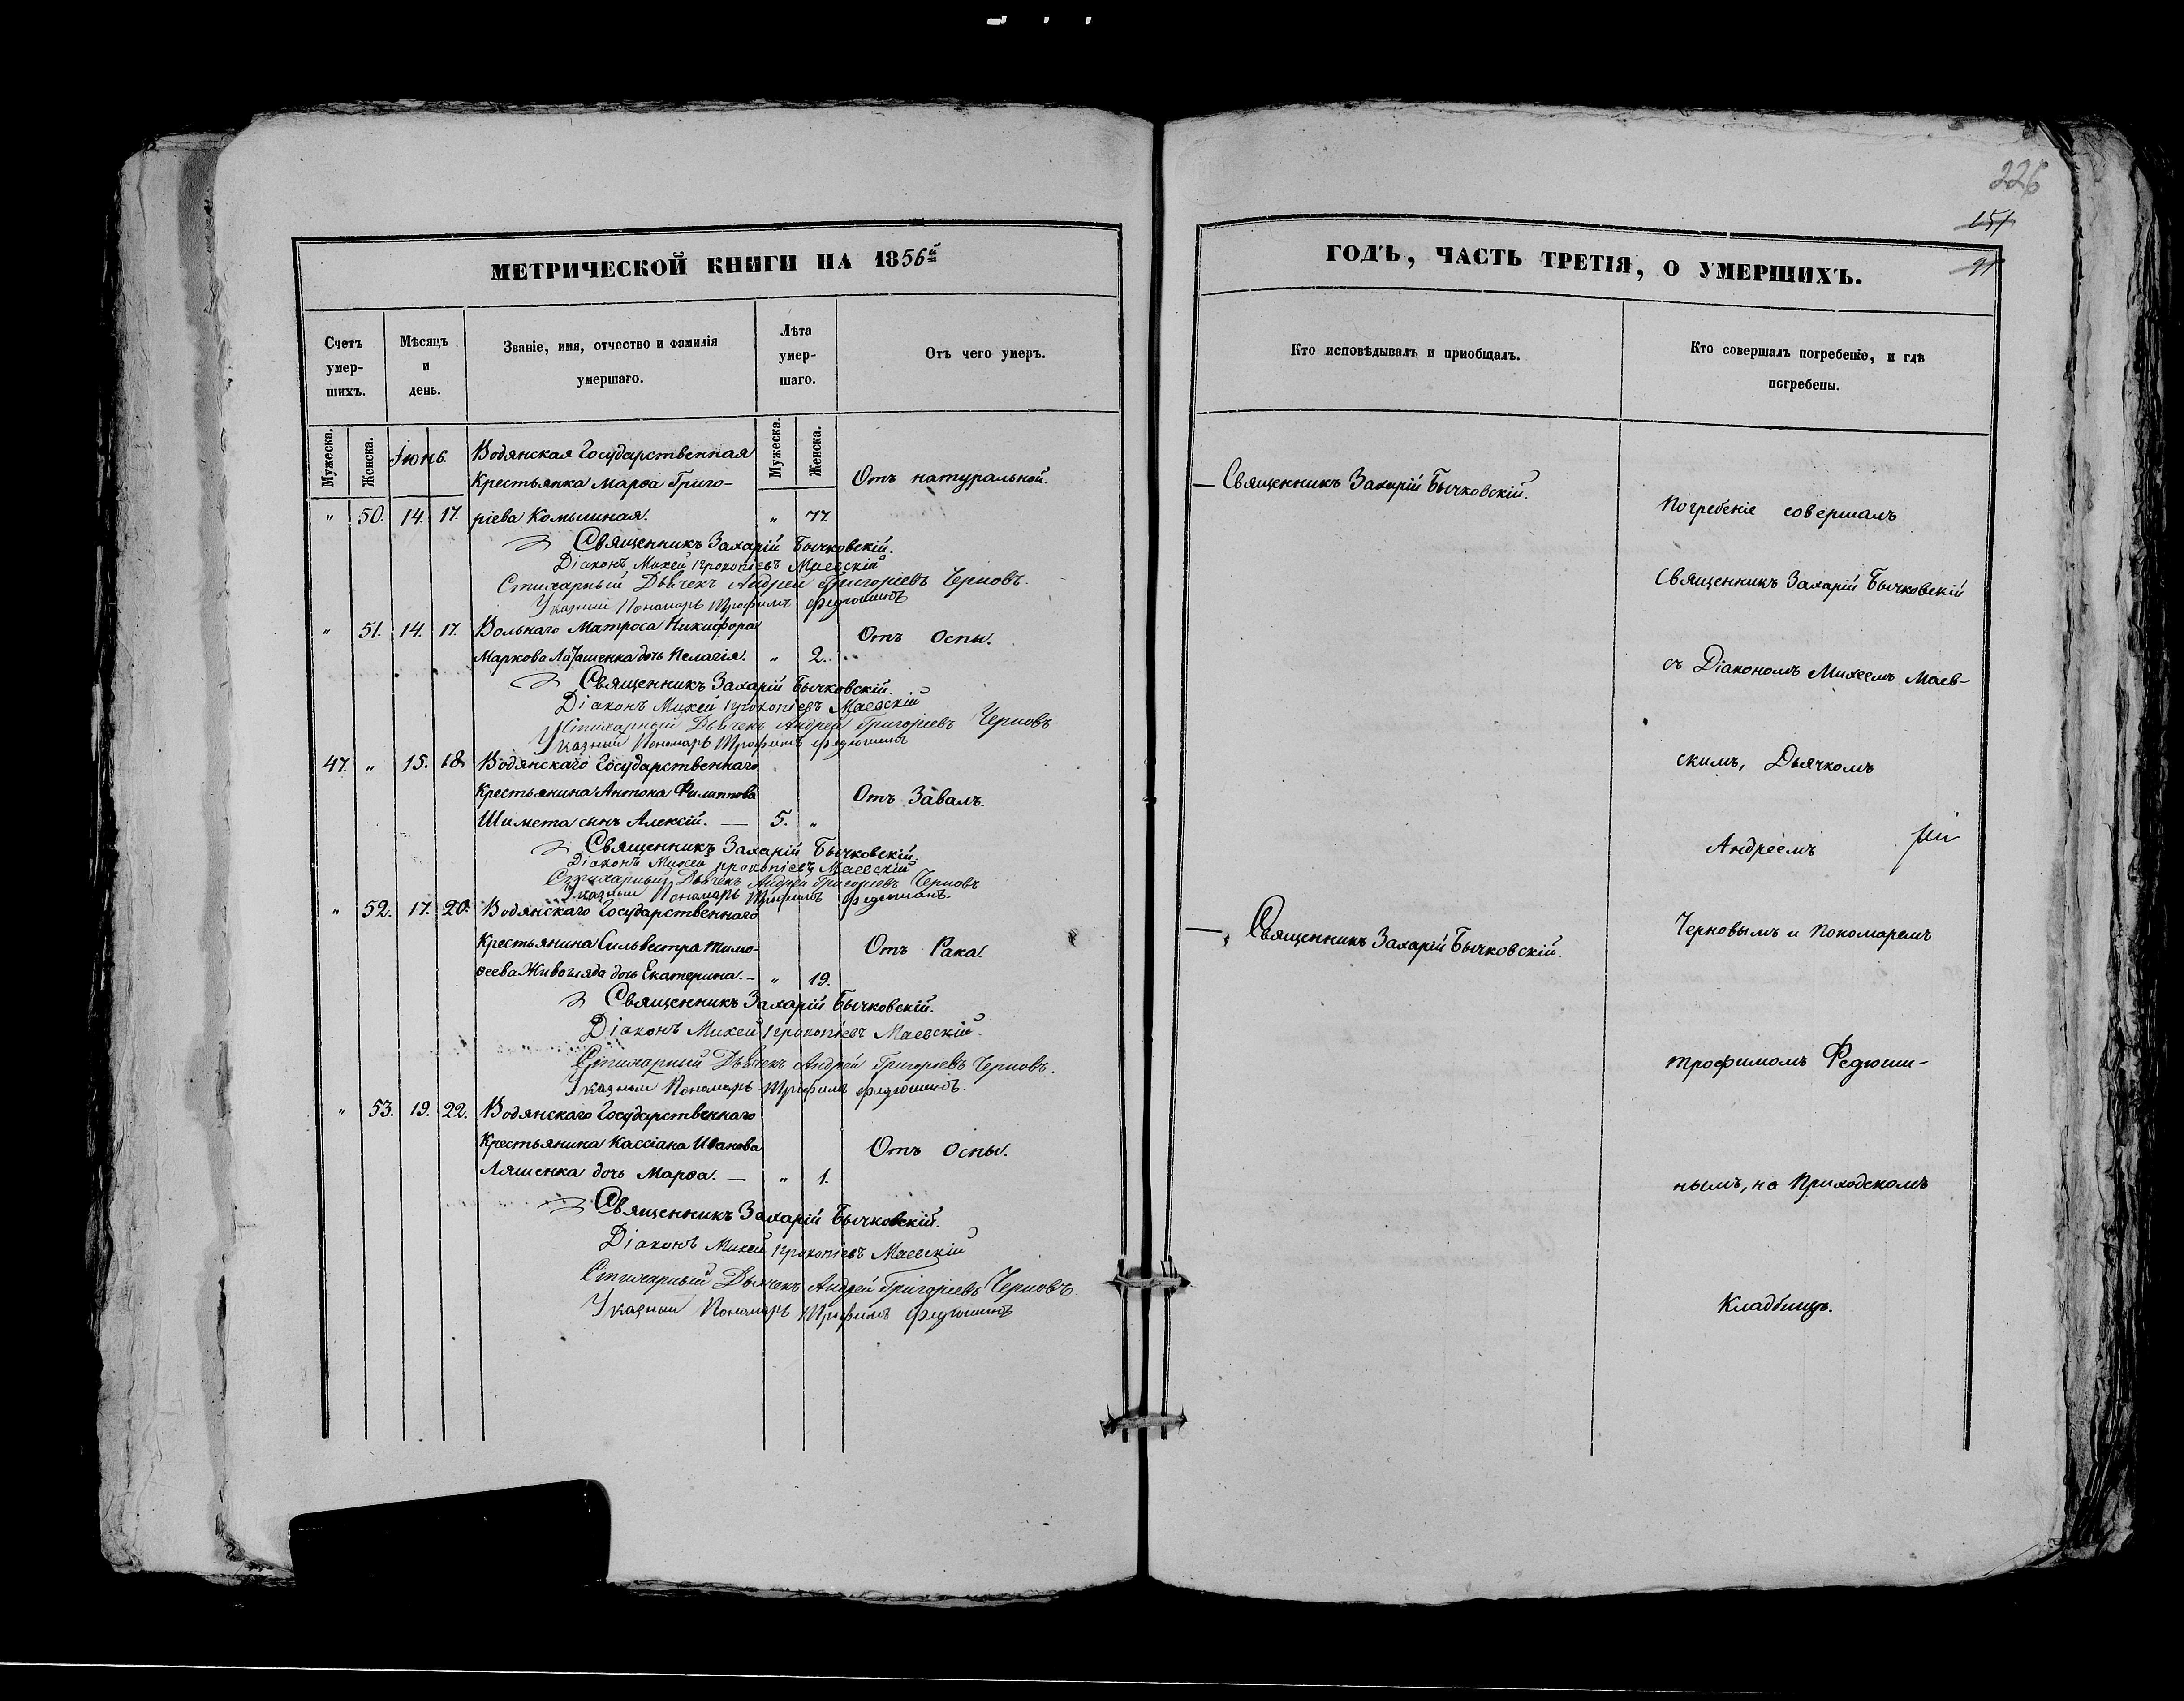 226
151
91
МЕТРИЧЕСКОЙ КНИГИ НА 1856й
Счетъ умер-шихъ.
Мѣсяцъ и день.
Званіе, имя, отчество и фамилія умершаго.
Лѣта умер-шаго.
Отъ чего умеръ.
Мужеска.
Женска.
Іюнь.
Мужеска.
Женска.
Водянская Государственная
Крестьянка Марѳа Григо-
Отъ натуральной.
" 50. 14. 17. ріева Комышная. " 77.
Священникъ Захарій Бычковскій.
Діаконъ Михей Прокопіевъ Маевскій
Стихарный Дьячекъ Андрей Григоріевъ Черновъ.
Указный Пономарь Трофимъ Федюшинъ
" 51. 14. 17. Вольнаго Матроса Никифора
Отъ Оспы.
Маркова дочь Пелагія. " 2.
Священникъ Захарій Бычковскій.
Діаконъ Михей Прокопіевъ Маевскій
Стихарный Дьячекъ Андрей Григоріевъ Черновъ
Указный Пономарь Трофимъ Федюшинъ
47. " 15. 18. Водянскаго Государственнаго
Крестьянина Антона Филиппова
Отъ Завалъ.
Шимета сынъ Алексій. — 5. "
Священникъ Захарій Бычковскій.
Діаконъ Михей Прокопіевъ Маевскій
Стихарный Дьячекъ Андрей Григоріевъ Черновъ
Указный Пономарь Трофимъ Федюшинъ.
" 52. 17. 20. Водянскаго Государственнаго
Крестьянина Сильвестра Тимо-
Отъ Рака.
ѳеева Живогляда дочь Екатерина. — " 19.
Священникъ Захарій Бычковскій.
Діаконъ Михей Прокопіевъ Маевскій.
Стихарный Дьячекъ Андрей Григоріевъ Черновъ.
Указный Пономарь Трофимъ Федюшинъ.
" 53. 19. 22. Водянскаго Государственнаго
Крестьянина Кассіана Иванова
Отъ Оспы.
Ляшенка дочь Марѳа. — " 1.
Священникъ Захарій Бычковскій.
Діаконъ Михей Прокопіевъ Маевскій
Стихарный Дьячекъ Андрей Григоріевъ Черновъ.
Указный Пономарь Трофимъ Федюшинъ
ГОДЪ, ЧАСТЬ ТРЕТІЯ, О УМЕРШИХЪ.
Кто исповѣдывалъ и пріобщалъ.
Кто совершалъ погребеніе, и гдѣ
погребены.
— Священникъ Захарій Бычковскій.
Погребеніе совершалъ
Священникъ Захарій Бычковскій
съ Діакономъ Михеемъ Маев-
скимъ, Дьячкомъ
Андреемъ
— Священникъ Захарій Бычковскій.
Черновымъ и Пономаремъ
Трофимомъ Федюши-
нымъ, на Приходскомъ
Кладбищѣ.